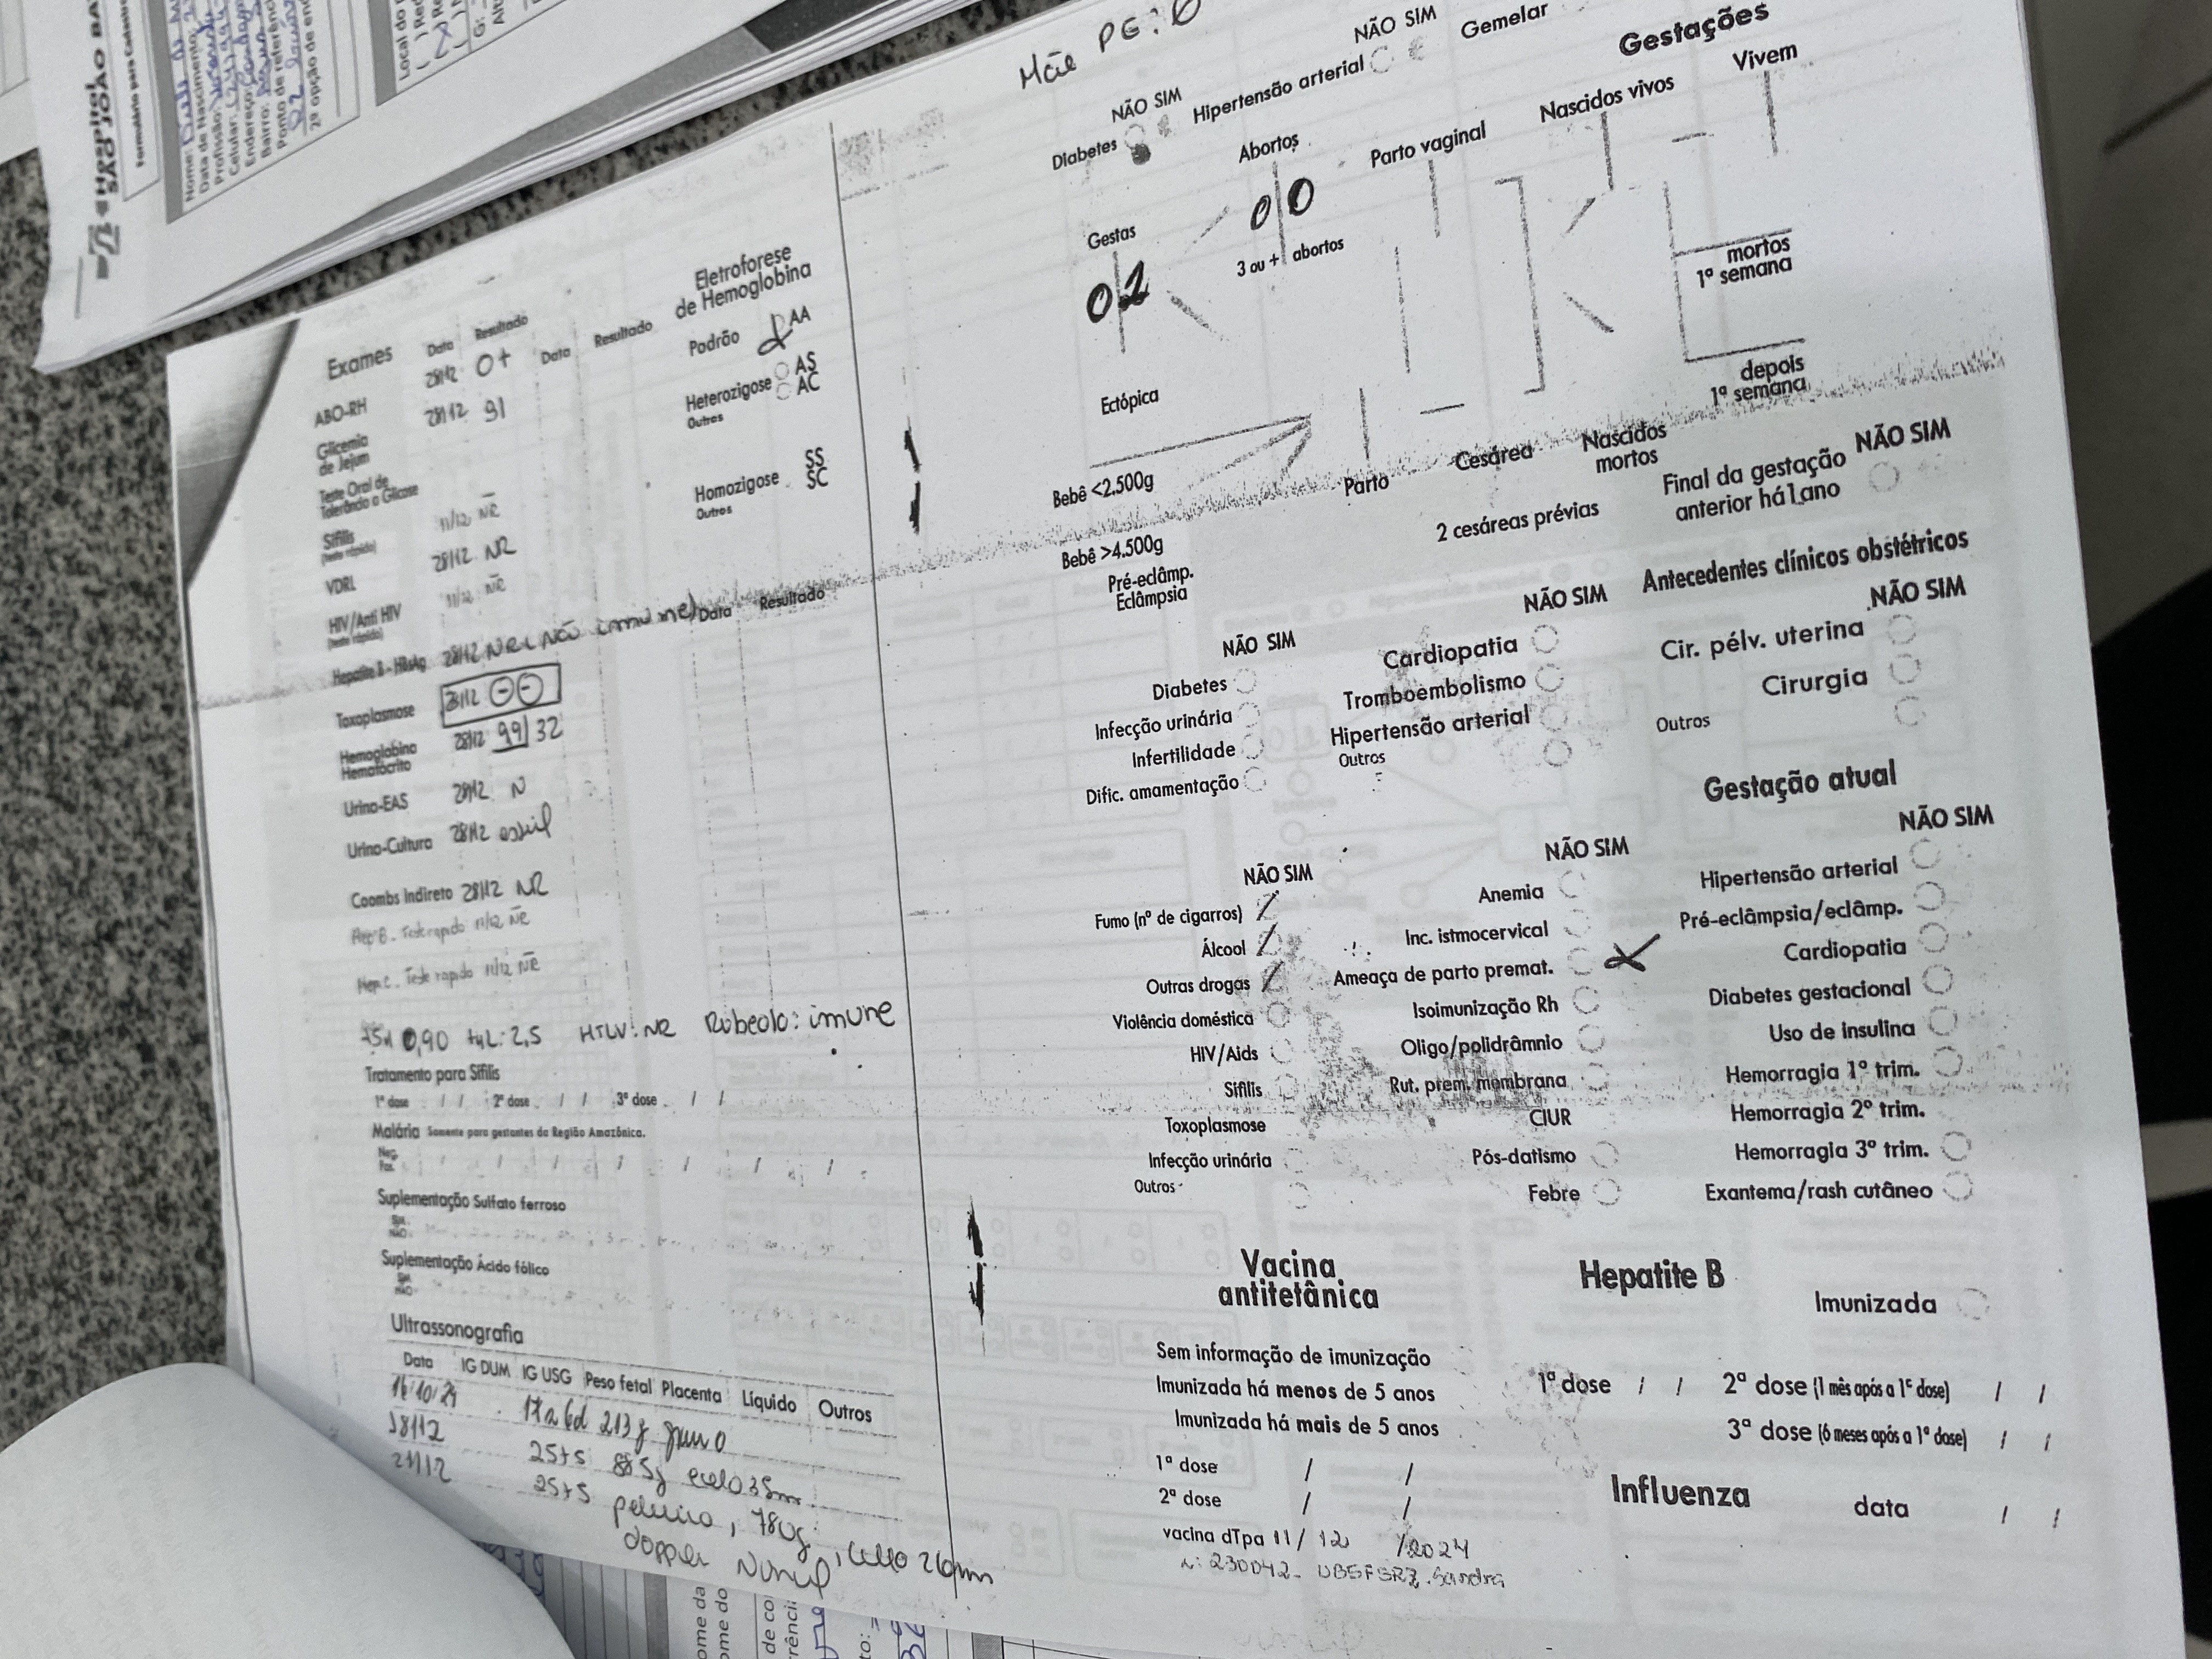 Hospital
SÃO JOÃO BA
Formulário para Cadas
Nome:
Data de Nascimento:
Profissão:
Celular:
Endereço:
Bairro:
Ponto de referência
2ª opção de en
Local do
Exames Data Resultado Data Resultado
ABO-RH 28/12 O+
Glicemia de Jejum 28/12 91
Teste Oral de Tolerância a Glicose
Sífilis (teste rápido) 11/12 NR
VDRL 28/12 NR
HIV/Anti HIV (teste rápido) 11/12 NR
Hepatite B - HBsAg 28/12 NR (Não imune)
Data Resultado
Toxoplasmose 28/12 (-) (-)
Hemoglobina Hematócrito 28/12 99/32
Urina-EAS 28/12 N
Urina-Cultura 28/12 estéril
Coombs Indireto 28/12 NR
Hep B - Teste rapido 11/12 NR
Hep C - Teste rapido 11/12 NR
TSH 0,90 t4L: 2,5 HTLV: NR Rubeola: imune
Eletroforese
de Hemoglobina
Padrão AA
Heterozigose AS
AC
Outros
Homozigose SS
SC
Outros
Tratamento para Sífilis
1ª dose / / 2ª dose / / 3ª dose / /
Malária Somente para gestantes da Região Amazônica.
Neg.
Pos.
Suplementação Sulfato ferroso
SIM
NÃO
Suplementação Ácido fólico
SIM
NÃO
Ultrassonografia
Data IG DUM IG USG Peso fetal Placenta Líquido Outros
16/10/24 17s 6d 213g
18/12 25+5 885g colo 35mm
21/12 25+5 pelvico, 780g, colo 26mm
doppler Normal
Mãe PE:
NÃO SIM
Diabetes
NÃO SIM
Hipertensão arterial
Gemelar
Gestações
Gestas
02
Abortos
00
3 ou + abortos
Parto vaginal
Nascidos vivos
Vivem
mortos
1ª semana
depois
1ª semana
Ectópica
Bebê <2.500g
Bebê >4.500g
Pré-eclâmp.
Eclâmpsia
Parto
Cesárea
Nascidos
mortos
2 cesáreas prévias
Final da gestação
anterior há 1 ano
NÃO SIM
Antecedentes clínicos obstétricos
NÃO SIM
Diabetes
Infecção urinária
Infertilidade
Dific. amamentação
NÃO SIM
Cardiopatia
Tromboembolismo
Hipertensão arterial
Outros
NÃO SIM
Cir. pélv. uterina
Cirurgia
Outros
Gestação atual
NÃO SIM
Fumo (nº de cigarros)
Álcool
Outras drogas
Violência doméstica
HIV/Aids
Sífilis
Toxoplasmose
Infecção urinária
Outros
NÃO SIM
Anemia
Inc. istmocervical
Ameaça de parto premat. X
Isoimunização Rh
Oligo/polidrâmnio
Rut. prem. membrana
CIUR
Pós-datismo
Febre
NÃO SIM
Hipertensão arterial
Pré-eclâmpsia/eclâmp.
Cardiopatia
Diabetes gestacional
Uso de insulina
Hemorragia 1º trim.
Hemorragia 2º trim.
Hemorragia 3º trim.
Exantema/rash cutâneo
Vacina
antitetânica
Sem informação de imunização
Imunizada há menos de 5 anos
Imunizada há mais de 5 anos
1ª dose / /
2ª dose / /
vacina dTpa 11/12/2024
230042 - Sandra
Hepatite B
Imunizada
1ª dose / / 2ª dose (1 mês após a 1ª dose) / /
3ª dose (6 meses após a 1ª dose) / /
Influenza data / /
ome da
ome do